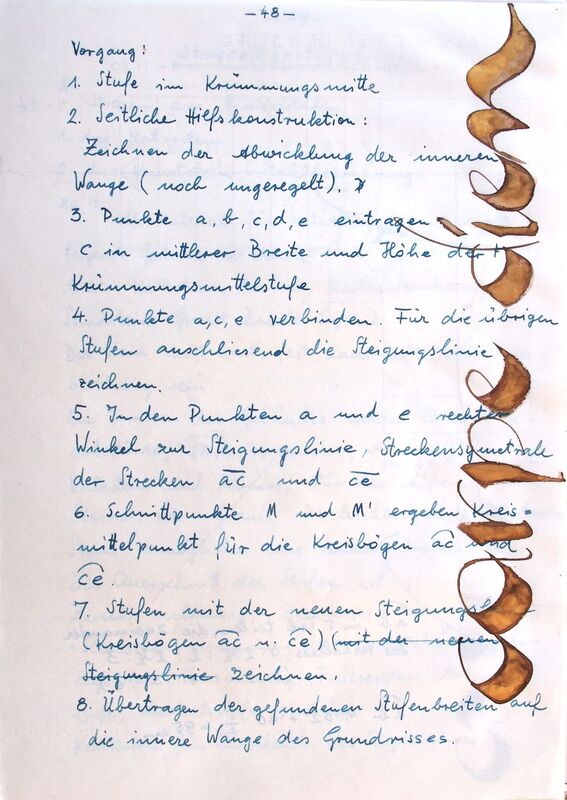 - 48 -
Vorgang:
1. Stufe im Krümmungsmitte
2. Seitliche Hilfskonstruktion:
Zeichnen der Abwicklung der inneren
Wange (noch ungeregelt).
3. Punkte a, b, c, d, e eintragen.
c in mittlerer Breite und Höhe der
Krümmungsmittelstufe
4. Punkte a, c, e verbinden. Für die übrigen
Stufen anschliesend die Steigungslinie
zeichnen.
5. In den Punkten a und e rechter
Winkel zur Steigungslinie, Streckensymetrale
der Strecken ac und ce
6. Schnittpunkte M und M' ergeben Kreis=
mittelpunkt für die Kreisbögen ac und
ce
7. Stufen mit der neuen Steigungsl
(Kreisbögen ac u. ce) (mit der neuen
Steigungslinie zeichnen.
8. Übertragen der gefundenen Stufenbreiten auf
die innere Wange des Grundrisses.
carpe diem